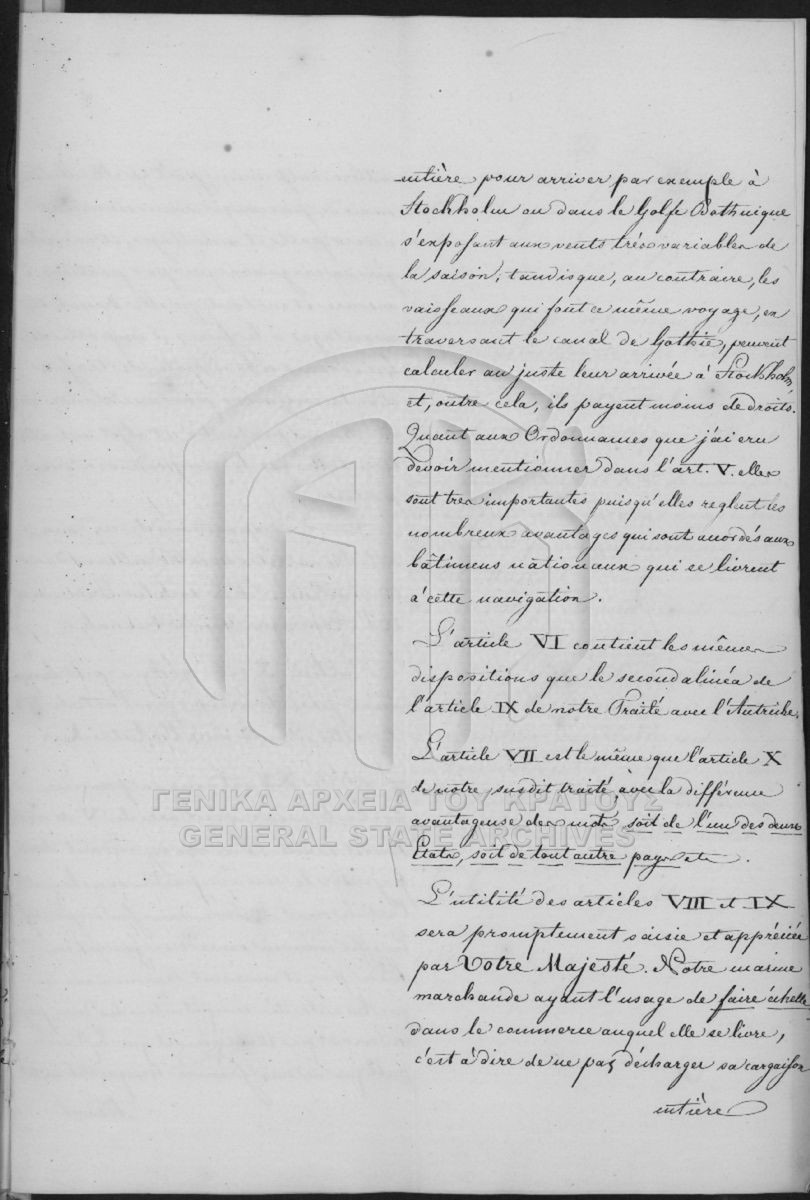 entière pour arriver par exemple à
Stockholm ou dans le Golfe Bothnique
s'exposant aux vents très variables de
la saison, tandis que, au contraire, les
vaisseaux qui font ce même voyage, en
traversant le canal de Gothie, peuvent
calculer au juste leur arrivée à Stockholm,
et, outre cela, ils payent moins de droits.
Quant aux Ordonnances que j'ai cru
devoir mentionner dans l'art. V. elles
sont tres importantes puisqu'elles reglent les
nombreux avantages qui sont accordés aux
bâtimens nationaux qui se livrent
à cette navigation.
L'article VI contient les mêmes
dispositions que le second alinéa de
l'article IX de notre Traité avec l'Autriche.
L'article VII est le même que l'article X
de notre susdit traité, avec la différence
avantageuse des mots soit de l'un des deux
Etats, soit de tout autre pays etc.
L'utilité des articles VIII et IX
sera promptement saisie et appréciée
par Votre Majesté. Notre marine
marchande ayant l'usage de faire échelle
dans le commerce auquel elle se livre,
c'est à dire de ne pas décharger sa cargaison
entière
ΓΕΝΙΚΑ ΑΡΧΕΙΑ ΤΟΥ ΚΡΑΤΟΥΣ
GENERAL STATE ARCHIVES